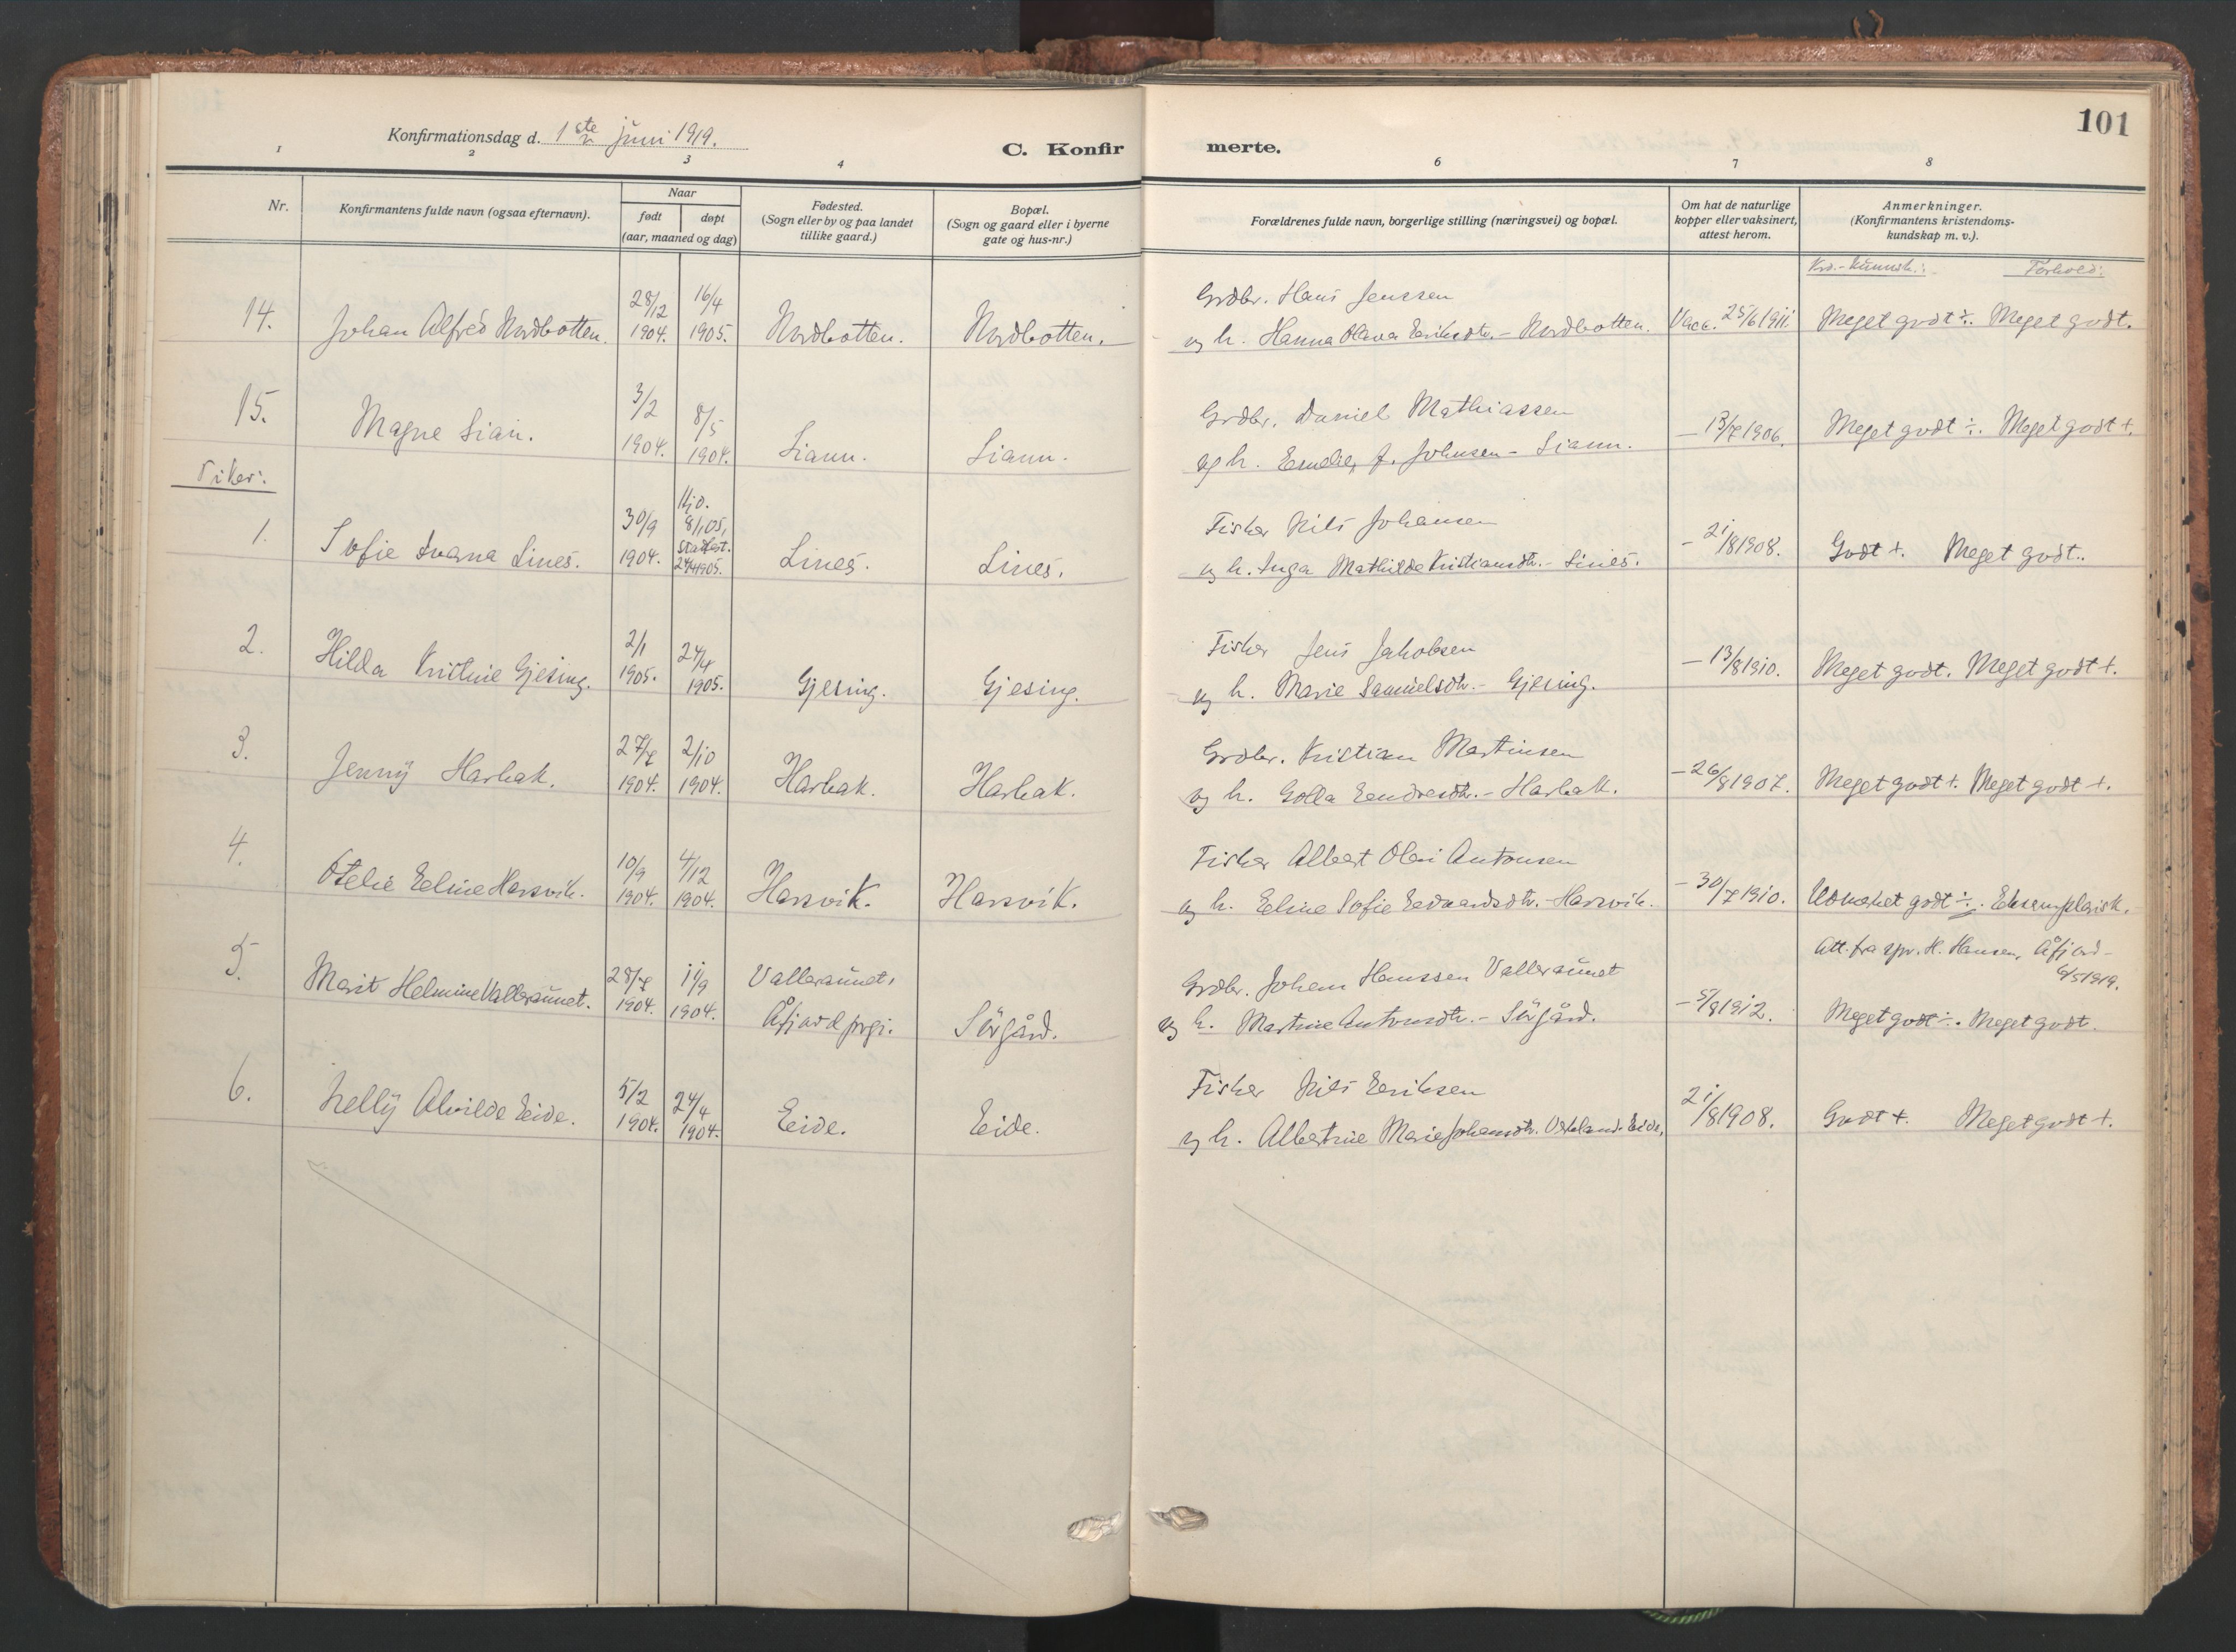 101
Konfirmationsdag d. 1ste juni 1919.
C. Konfirmerte.
1 2 3 4 6 7 8
Nr.
Konfirmantens fulde navn (ogsaa efternavn).
Naar
født døpt
(aar, maaned og dag)
Fødested.
(Sogn eller by og paa landet
tillike gaard.)
Bopæl.
(Sogn og gaard eller i byerne
gate og hus-nr.)
Forældrenes fulde navn, borgerlige stilling (næringsvei) og bopæl.
Om hat de naturlige
kopper eller vaksinert,
attest herom.
Anmerkninger.
(Konfirmantens kristendoms-
kundskap m. v.).
Krd.-kunnsk.: Forhold:
14. Johan Alfred Nordbotten. 28/12 1904. 16/4 1905. Nordbotten. Nordbotten.
Grdbr. Hans Jenssen
og h. Hanna Olava Eriksdtr. - Nordbotten. Vacc. 25/6 1911. Meget godt ÷. Meget godt.
15. Magne Lian. 3/2 1904. 8/5 1904. Liann. Liann.
Grdbr. Daniel Mathiassen
og h. J. Johnsen - Liann. – 13/7 1906. Meget godt ÷. Meget godt +.
Piker:
1. Sofie Ivana Lines. 30/9 1904. Hjd. 8/1 05, stadfest. 24/4 1905. Lines. Lines.
Fisker Nils Johansen
og h. Inga Mathilde Kristiansdtr. - Lines. – 21/8 1908. Godt +. Meget godt.
2. Hilda Kristine Gjesing. 2/1 1905. 24/4 1905. Gjesing. Gjesing.
Fisker Jens Jakobsen
og h. Marie Samuelsdtr. - Gjesing. – 13/8 1910. Meget godt. Meget godt +.
3. Jenny Harbak. 27/7 1904. 2/10 1904. Harbak. Harbak.
Grdbr. Kristian Martinsen
og h. Golla Eendresdtr. - Harbak. – 26/8 1907. Meget godt +. Meget godt +.
4. Otelie Eeline Harsvik. 10/9 1904. 4/12 1904. Harsvik. Harsvik.
Fisker Albert Olai Antonsen
og h. Eeline Sofie Eedvardsdtr. - Harsvik. – 30/7 1910. Udmerket godt ÷. Eksemplarisk.
5. Marit Helmine Valleraunet. 28/7 1904. 11/9 1904. Valleraunet, Åfjord prgj. Sörgård.
Grdbr. Johan Hanssen Valleraunet
og h. Martine Antonsdtr. - Sörgård. – 5/8 1912. Att. fra spr. H. Hansen, Åfjord -
6/5 1919.
Meget godt ÷. Meget godt.
6. Nelly Alvilde Eide. 5/2 1904. 24/4 1904. Eide. Eide.
Fisker Nils Eeriksen
og h. Albertine Marie Johansdtr. Eide. 21/8 1908. Godt +. Meget godt +.